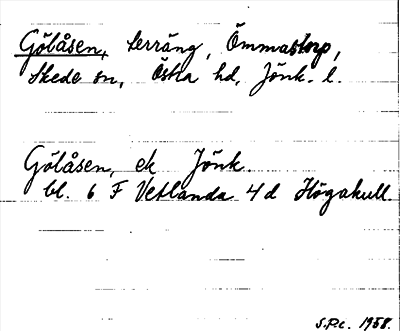 Gölåsen, terräng, Ömmastorp,
Skede sn, Östra hd, Jönk. l.
Gölåsen, ek Jönk.
bl. 6 F Vetlanda 4 d Högakull.
S.P.c. 1958.